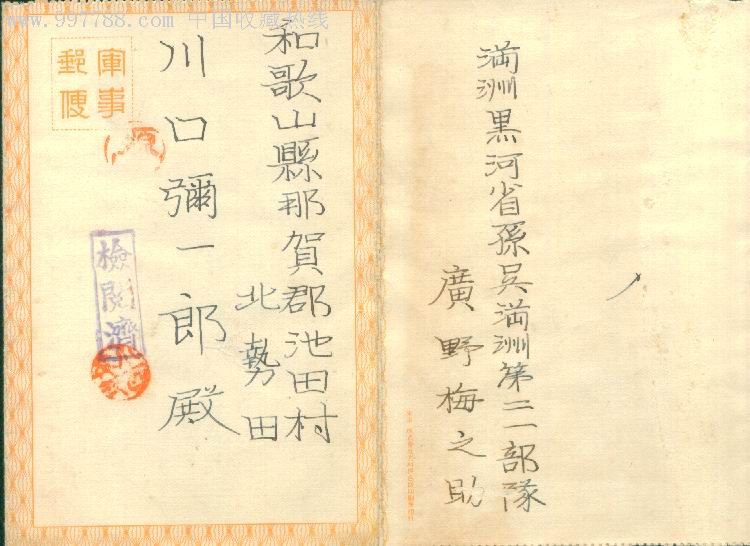 www.997788.com 中国收藏热线
軍事
郵便
和歌山縣那賀郡池田村
北勢田
川口彌一郎殿
檢閲濟
満洲黒河省孫呉満洲第二一部隊
廣野梅之助